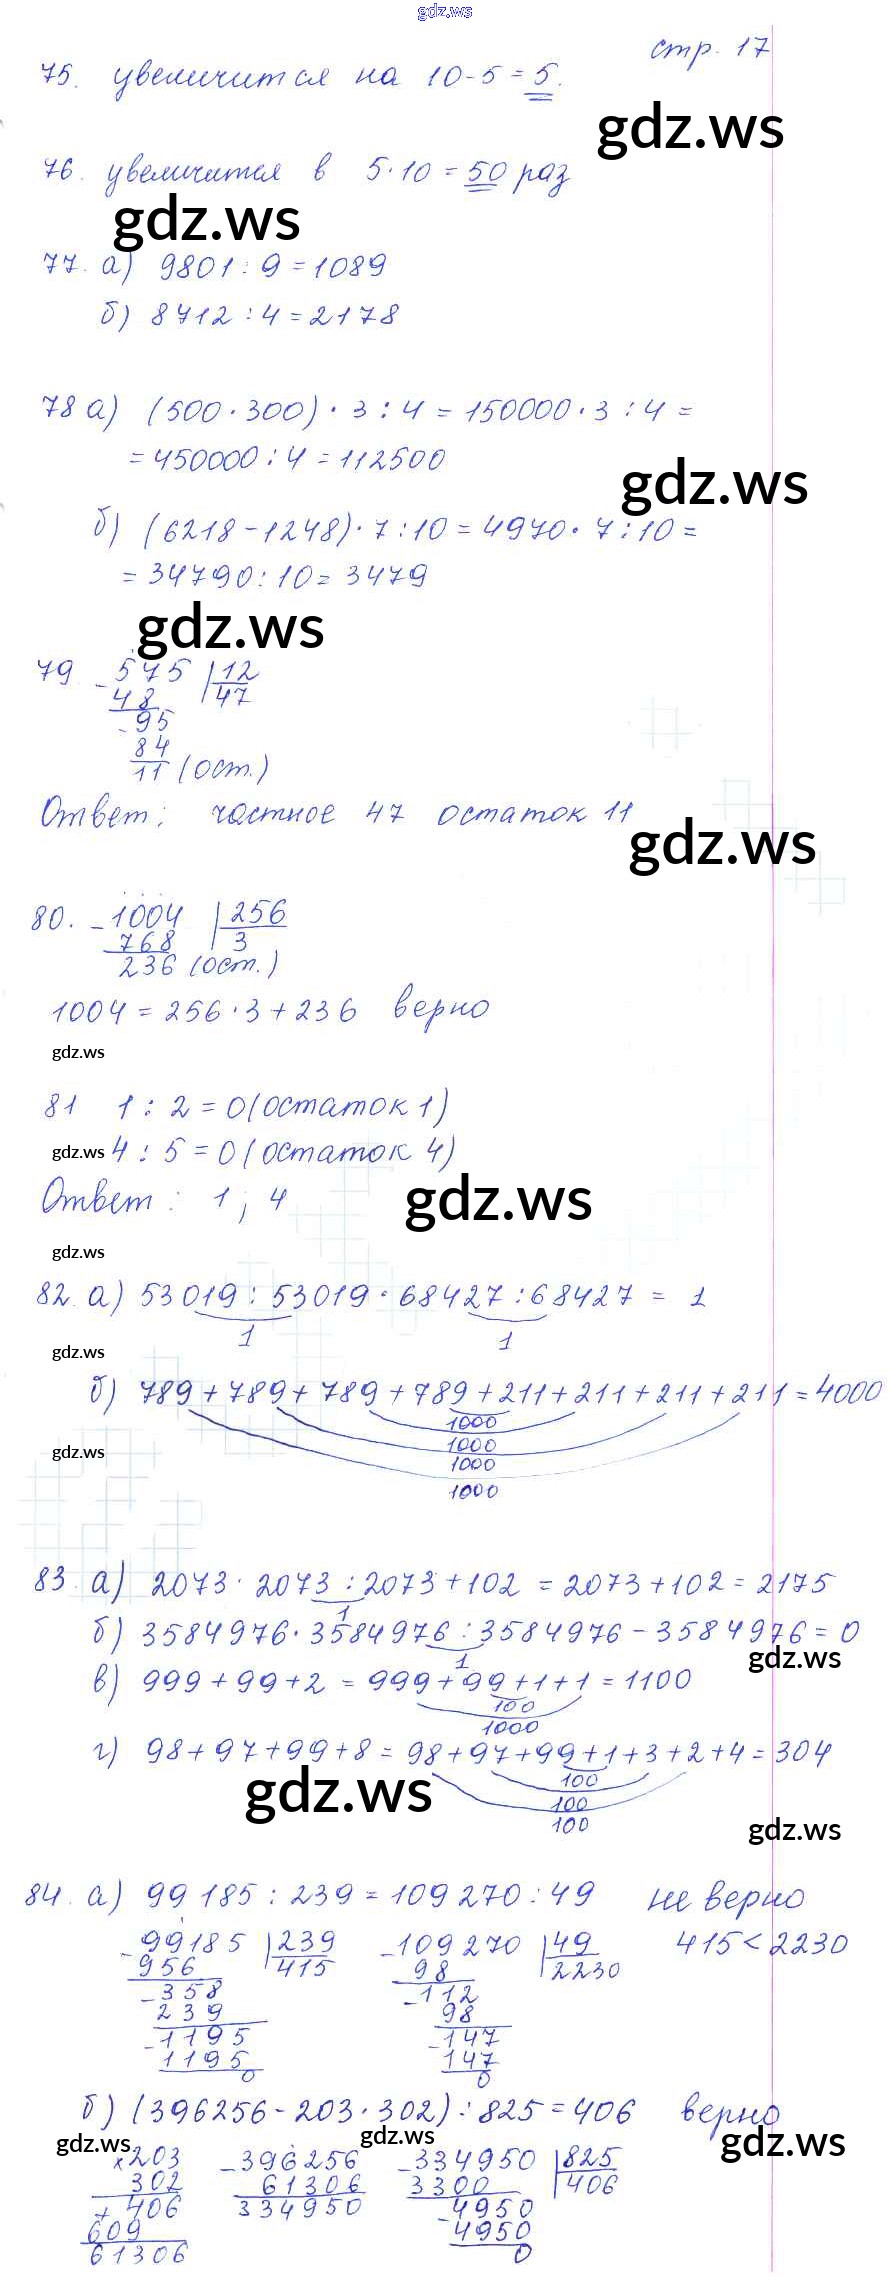 gdz.ws
стр. 17
75. увеличится на 10-5=5.
gdz.ws
76. увеличится в 5·10=50 раз
gdz.ws
77. а) 9801:9=1089
б) 8712:4=2178
78 а) (500·300)·3:4=150000·3:4=
=450000:4=112500
gdz.ws
б) (6218-1248)·7:10=4970·7:10=
=34790:10=3479
gdz.ws
79. -575 |12
48 47
-95
84
11 (ост.)
Ответ: частное 47 остаток 11
gdz.ws
80. -1004 |256
768 3
236 (ост.)
1004=256·3+236 верно
gdz.ws
81 1:2=0(остаток 1)
gdz.ws 4:5=0(остаток 4)
Ответ: 1; 4
gdz.ws
gdz.ws
82. а) 53019:53019·68427:68427 = 1
1 1
gdz.ws
б) 789+789+789+789+211+211+211+211=4000
1000
1000
gdz.ws
1000
1000
83. а) 2073·2073:2073+102=2073+102=2175
1
б) 3584976·3584976:3584976-3584976=0
1
gdz.ws
в) 999+99+2=999+99+1+1=1100
100
1000
г) 98+97+99+8=98+97+99+1+3+2+4=304
gdz.ws
100
100
100
gdz.ws
84. а) 99185:239=109270:49 не верно
-99185 |239 -109270 |49 415<2230
956 415 98 2230
-358 -112
239 98
-1195 -147
1195 147
0 0
б) (396256-203·302):825=406 верно
gdz.ws gdz.ws gdz.ws
×203 -396256 -334950 |825
302 61306 3300 406
+406 334950 -4950
609 4950
61306 0